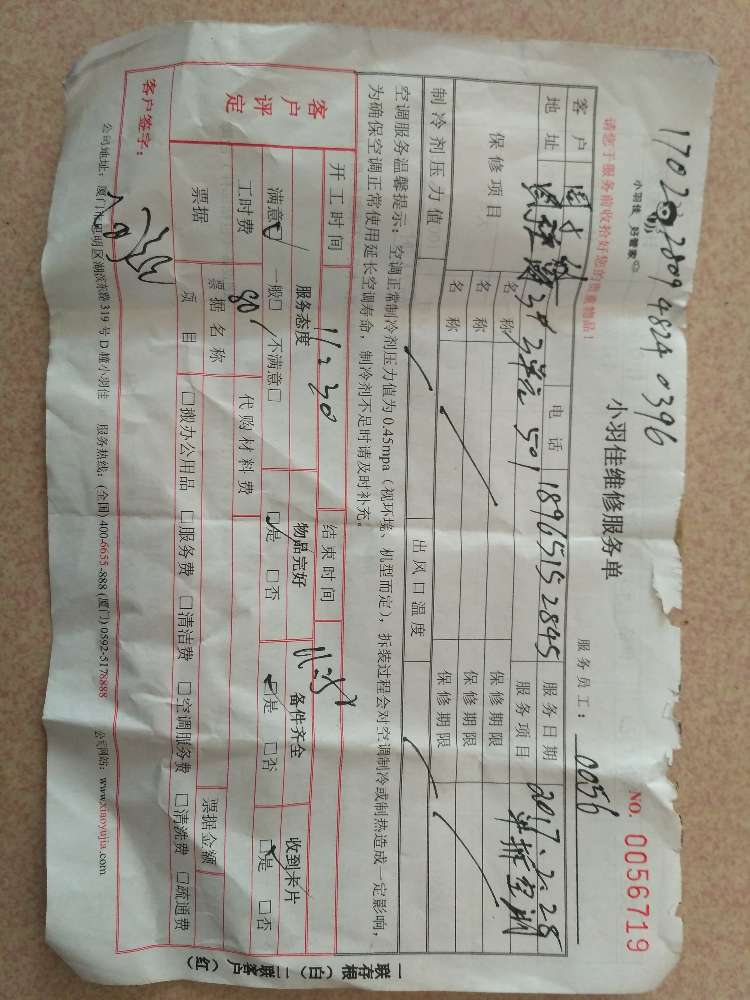 1702 2809 4824 0396
小羽佳 好管家
小羽佳维修服务单
NO. 0056719
请您于服务前收拾好您的贵重物品！
服务员工： 0056
客户 电话 18965152845 服务日期 2017.2.28
地址 3# 2单元 501 服务项目 单拆空调
保修项目 名称 保修期限
名称 保修期限
名称 保修期限
制冷剂压力值 出风口温度
空调服务温馨提示：空调正常制冷剂压力值为0.45mpa（视环境、机型而定），拆装过程会对空调制冷或制热造成一定影响，
为确保空调正常使用延长空调寿命，制冷剂不足时请及时补充。
开工时间 11:30 结束时间
客户评定 服务态度 物品完好 备件齐全 收到卡片
满意□ 一般□ 不满意□ □是 □否 □是 □否 □是 □否
工时费 80 代购材料费
票据 票据名称 票据金额
项目 □搬办公用品 □服务费 □清洁费 □空调服务费 □清洗费 □疏通费
客户签字：
公司地址：厦门市思明区湖滨东路319号D幢小羽佳 服务热线：(全国) 400-6655-888 (厦门) 0592-5178888 公司网站：www.xiaoyujia.com
一联存根（白）二联客户（红）